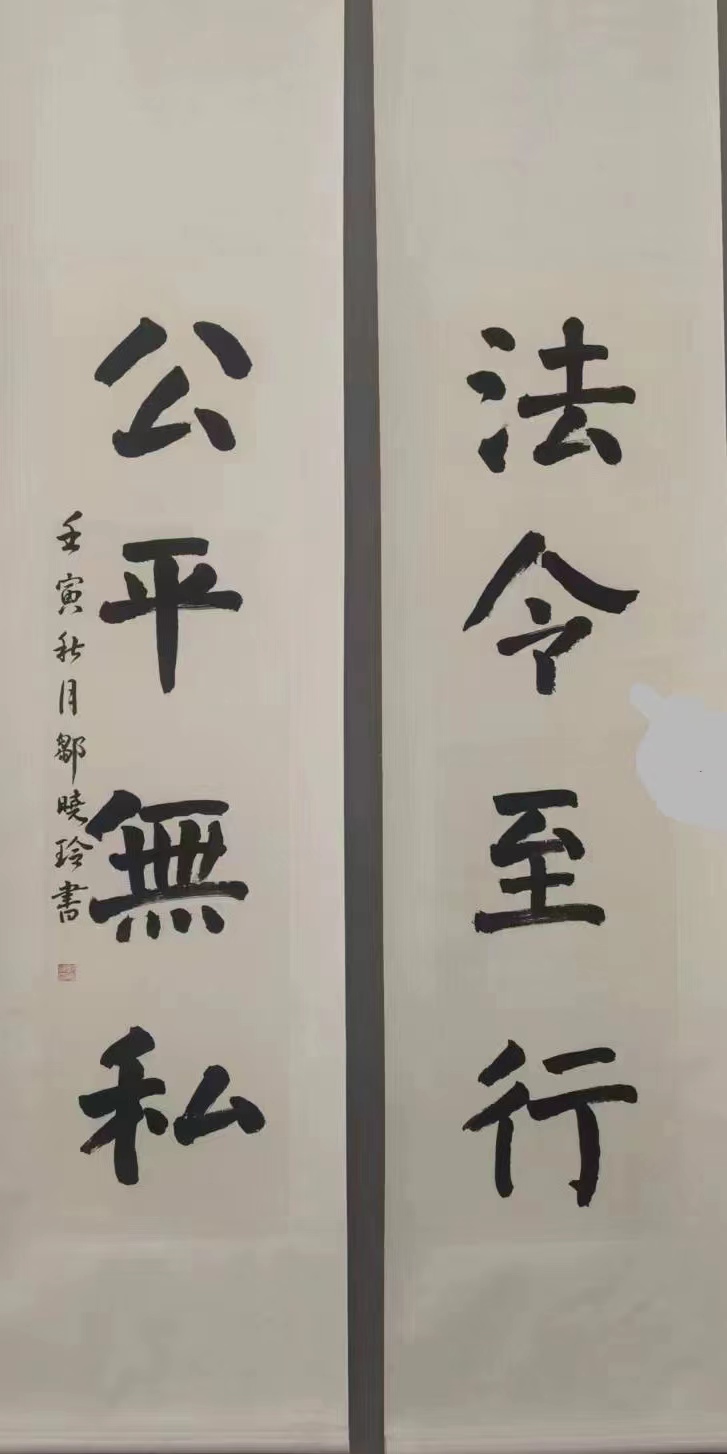 法令至行
公平無私
壬寅秋月鄒曉玲書